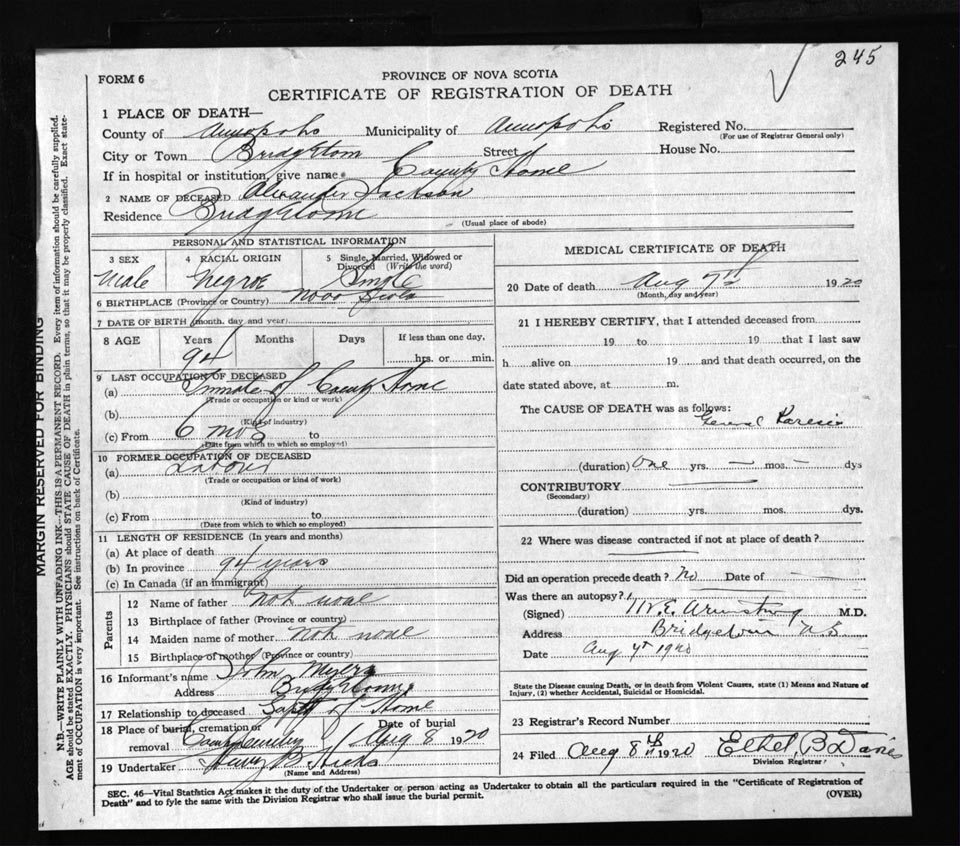 245
FORM 6
PROVINCE OF NOVA SCOTIA
CERTIFICATE OF REGISTRATION OF DEATH
1 PLACE OF DEATH—
County of Annapolis Municipality of Annapolis Registered No.
(For use of Registrar General only)
City or Town Bridgetown Street House No.
If in hospital or institution, give name County Home
2 NAME OF DECEASED Alexander Jackson
Residence Bridgetown
(Usual place of abode)
PERSONAL AND STATISTICAL INFORMATION
3 SEX 4 RACIAL ORIGIN 5 Single, Married, Widowed or Divorced (Write the word)
Male Negroe Single
6 BIRTHPLACE (Province or Country) Nova Scotia
7 DATE OF BIRTH (month, day and year)
8 AGE Years Months Days If less than one day,
94 hrs. or min.
9 LAST OCCUPATION OF DECEASED
(a) Inmate of County Home
(Trade or occupation or kind or work)
(b)
(Kind of industry)
(c) From 6 mos to
(Date from which to which so employed)
10 FORMER OCCUPATION OF DECEASED
(a) Labour
(Trade or occupation or kind of work)
(b)
(Kind of industry)
(c) From to
(Date from which to which so employed)
11 LENGTH OF RESIDENCE (In years and months)
(a) At place of death
(b) In province 94 years
(c) In Canada (if an immigrant)
Parents
12 Name of father not
13 Birthplace of father (Province or country)
14 Maiden name of mother not
15 Birthplace of mother (Province or country)
16 Informant's name John Myers
Address Bridgetown
17 Relationship to deceased of Home
18 Place of burial, cremation or removal Date of burial
Aug 8 1920
19 Undertaker Harry B Hicks
(Name and Address)
MEDICAL CERTIFICATE OF DEATH
20 Date of death Aug 7th 1920
(Month, day and year)
21 I HEREBY CERTIFY, that I attended deceased from
19 to 19 that I last saw
h alive on 19 and that death occurred, on the
date stated above, at m.
The CAUSE OF DEATH was as follows:
General Paresis
(duration) One yrs. — mos. — dys
CONTRIBUTORY
(Secondary)
(duration) yrs. mos. dys.
22 Where was disease contracted if not at place of death?
Did an operation precede death? No Date of —
Was there an autopsy?
(Signed) W.E. Armstrong M.D.
Address Bridgetown N.S
Date Aug 1920
State the Disease causing Death, or in death from Violent Causes, state (1) Means and Nature of
Injury, (2) whether Accidental, Suicidal or Homicidal.
23 Registrar's Record Number
24 Filed Aug 8th 1920 Ethel B Davies
Division Registrar
SEC. 46—Vital Statistics Act makes it the duty of the Undertaker or person acting as Undertaker to obtain all the particulars required in the "Certificate of Registration of
Death" and to fyle the same with the Division Registrar who shall issue the burial permit. (OVER)
MARGIN RESERVED FOR BINDING
N.B.—WRITE PLAINLY WITH UNFADING INK—THIS IS A PERMANENT RECORD. Every item of information should be carefully supplied.
AGE should be stated EXACTLY. PHYSICIANS should STATE CAUSE OF DEATH in plain terms, so that it may be properly classified. Exact state-
ment of OCCUPATION is very important. See instructions on back of Certificate.